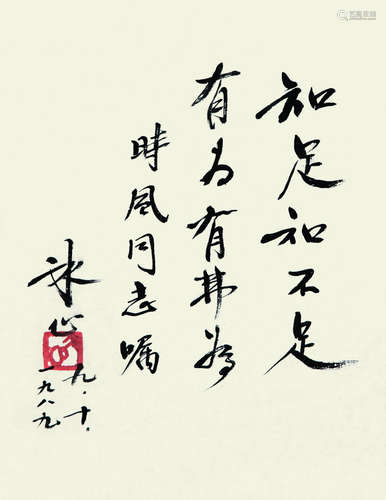 知足知不足
有为有弗為
時風同志嘱
冰心
九.十.
一九八九